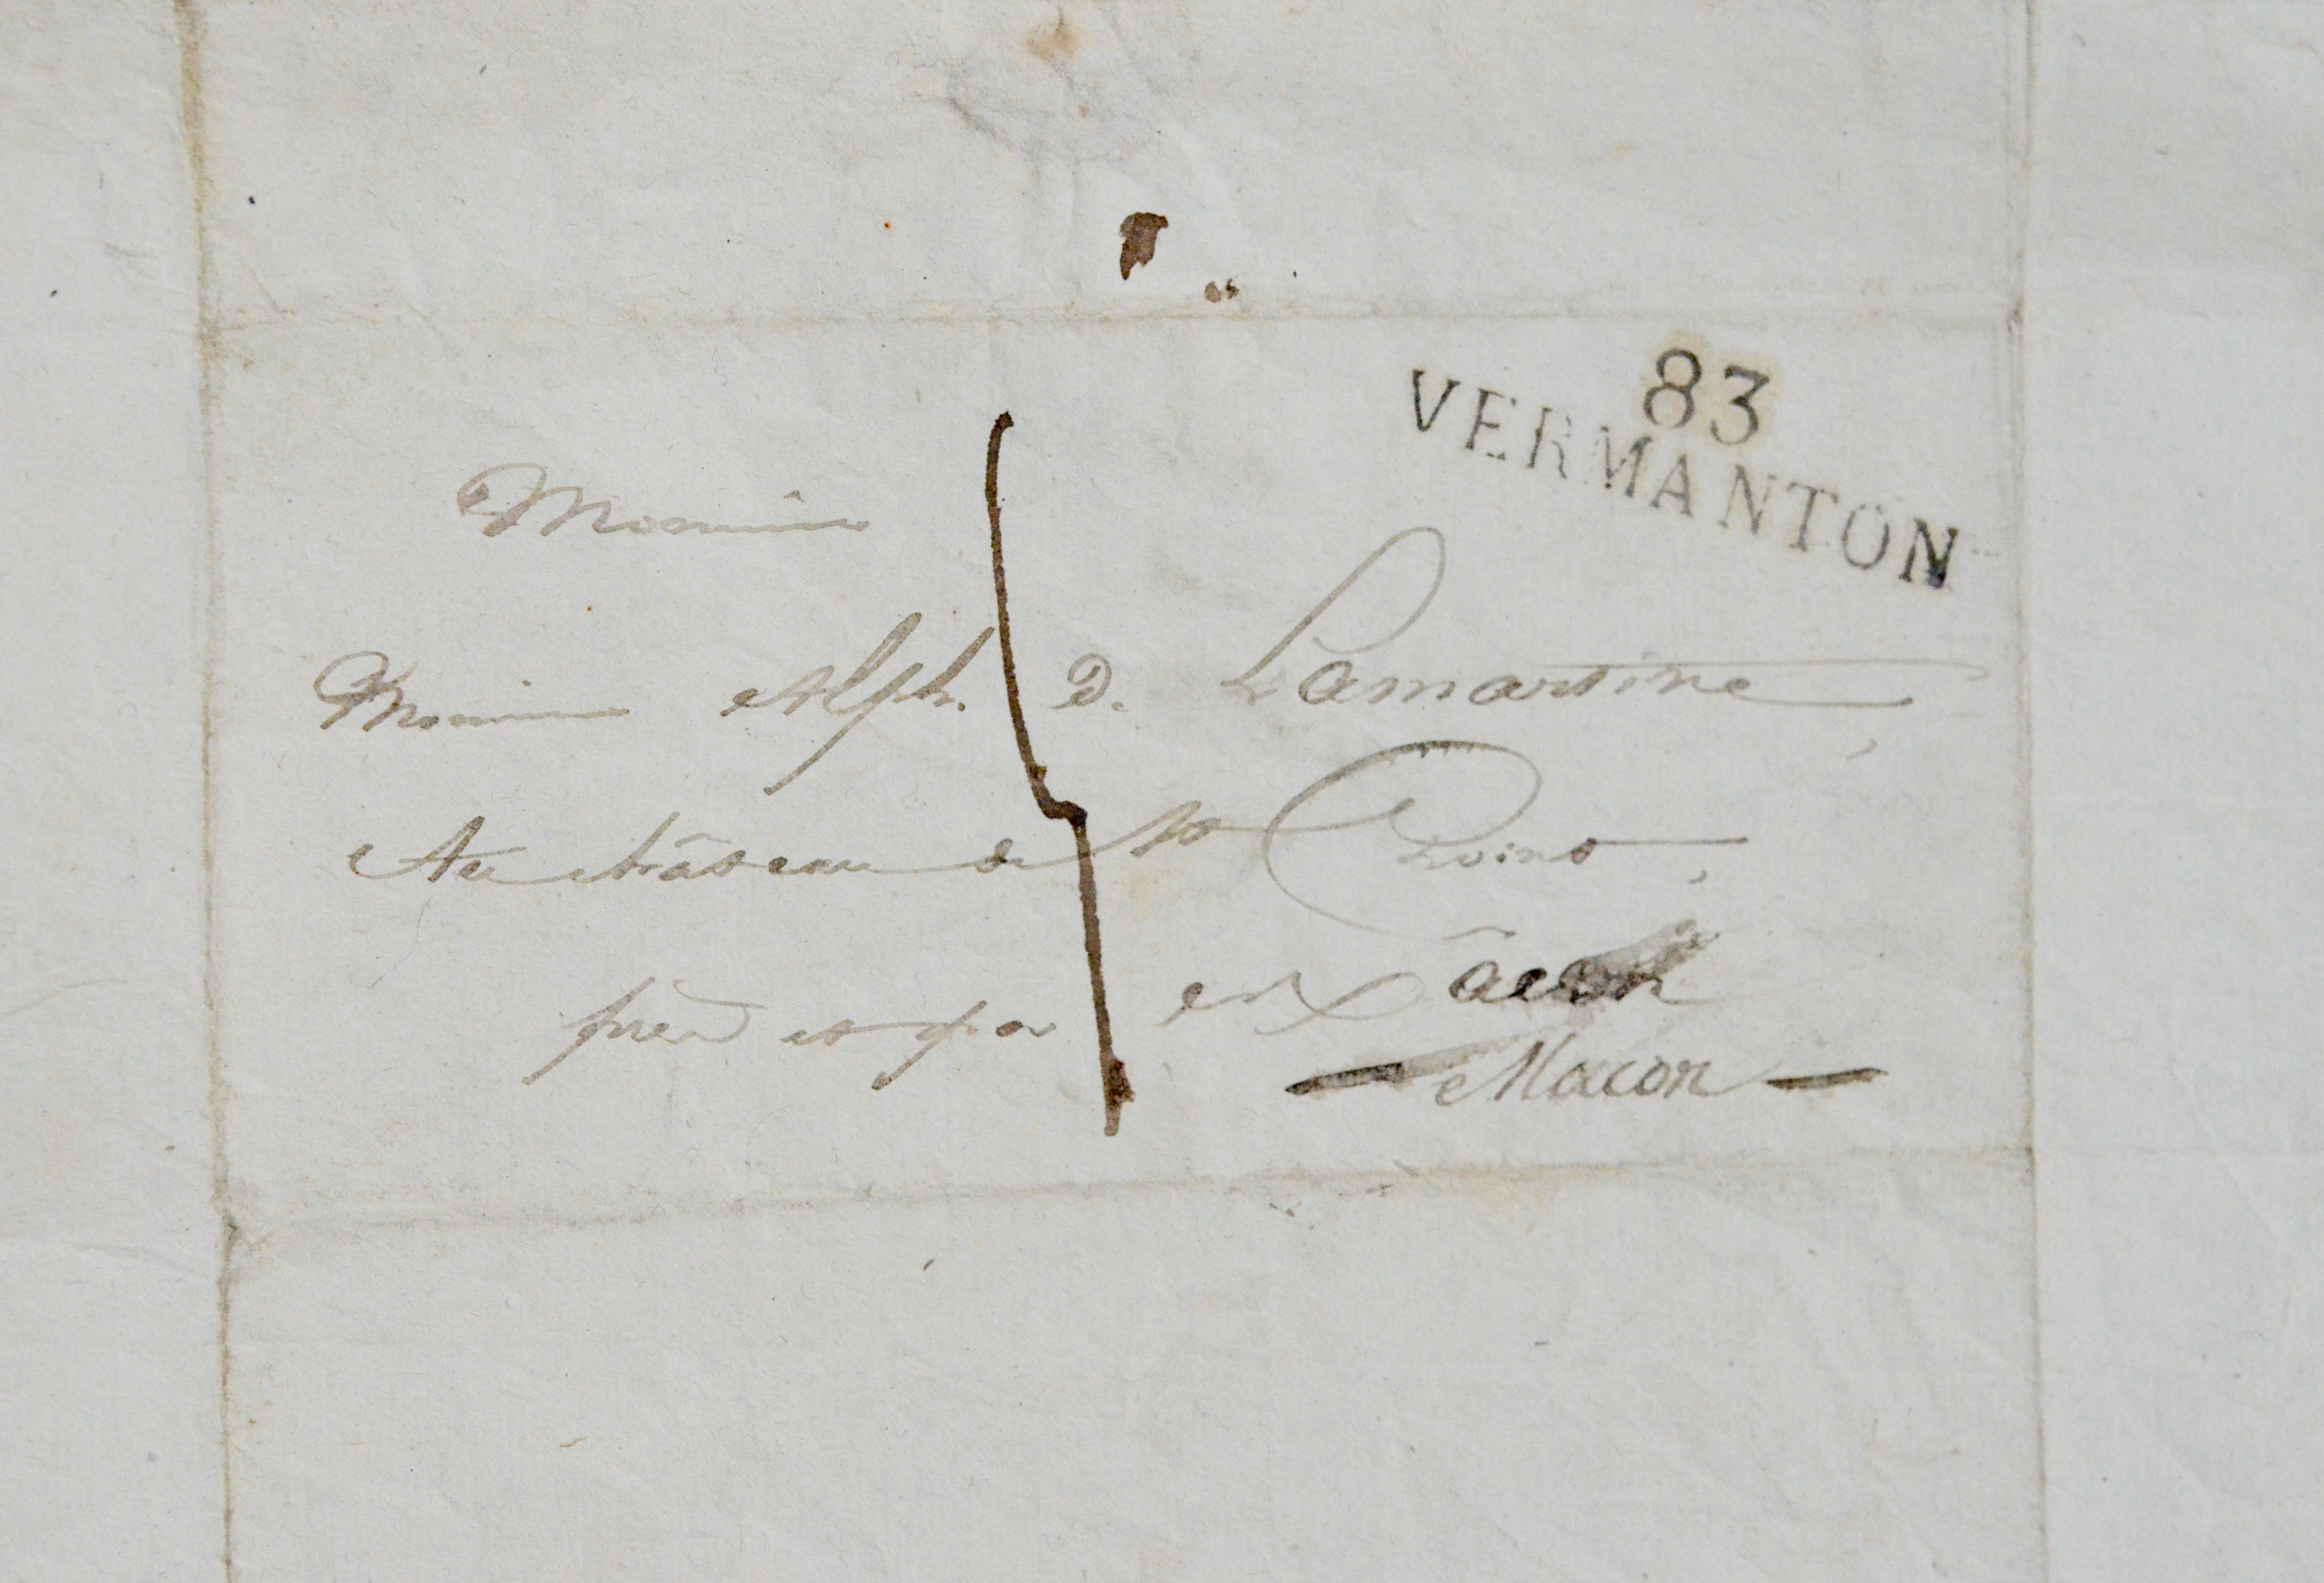 83
VERMANTON
Monsieur
Monsieur Alph. D. Lamartine,
Au château de St Point,
près et par
Macon